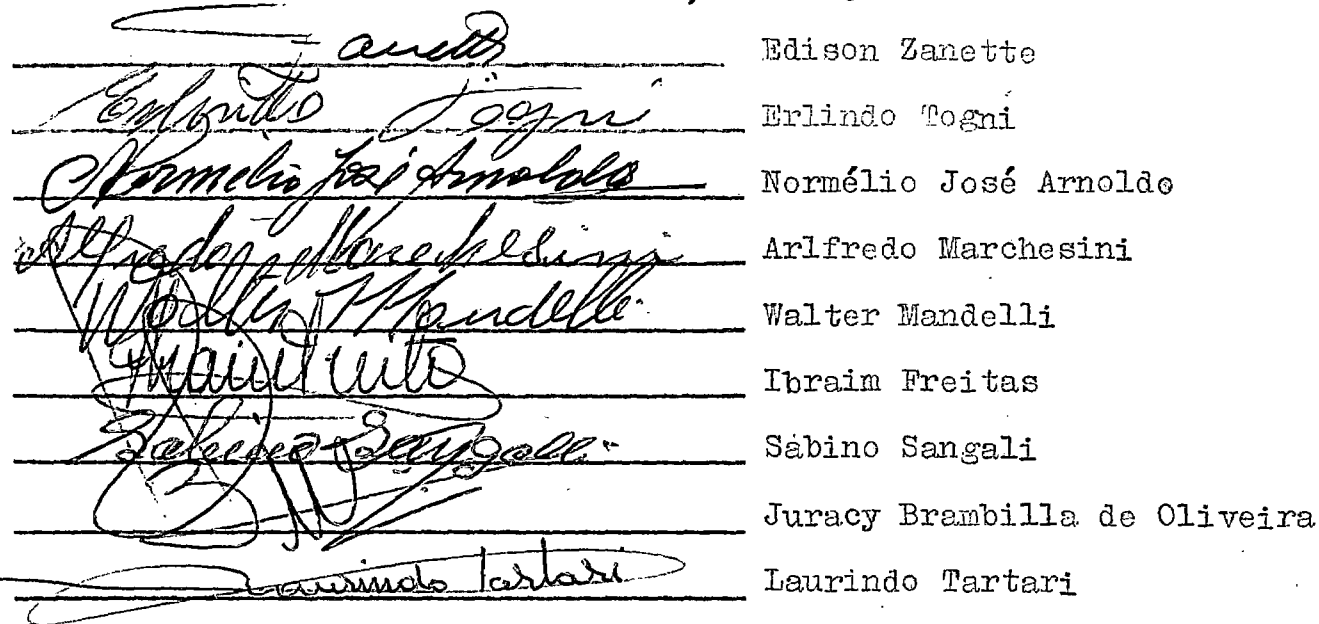 Zanette Edison Zanette
Erlindo Togni Erlindo Togni
Normelio José Arnoldo Normélio José Arnoldo
Alfredo Marchesini Arlfredo Marchesini
Walter Mandelli Walter Mandelli
Ibraim Freitas
Sabino Sangalli Sábino Sangali
Juracy Brambilla de Oliveira
Laurindo Tartari Laurindo Tartari